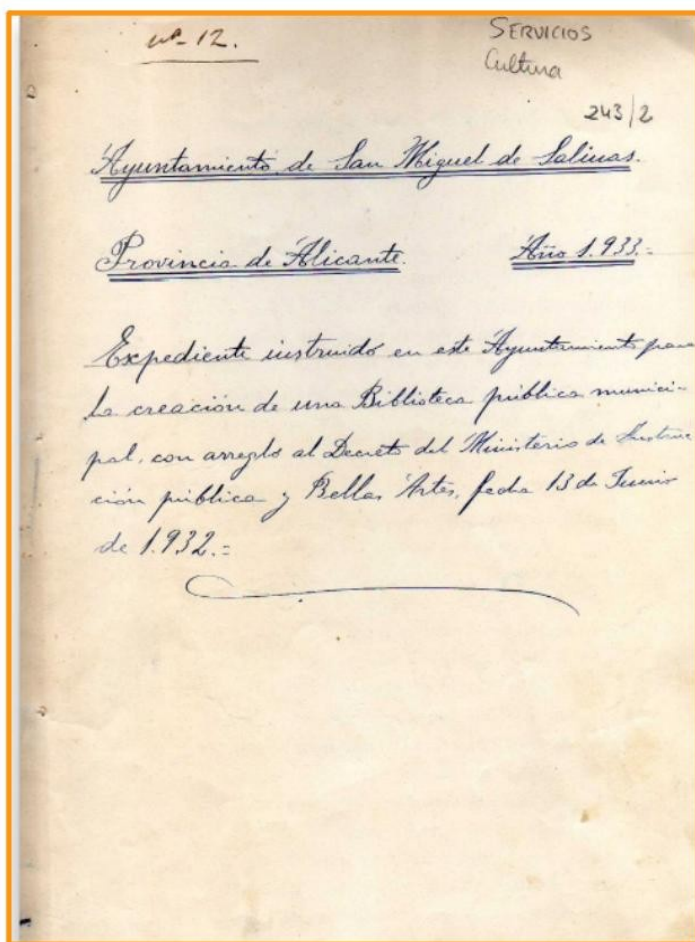 nº 12.
SERVICIOS
Cultura
243/2
Ayuntamiento de San Miguel de Salinas.
Provincia de Alicante. Año 1.933.=
Expediente instruido en este Ayuntamiento para
la creación de una Biblioteca pública munici-
pal, con arreglo al Decreto del Ministerio de Instruc
ción pública y Bellas Artes, fecha 13 de Junio
de 1.932.=